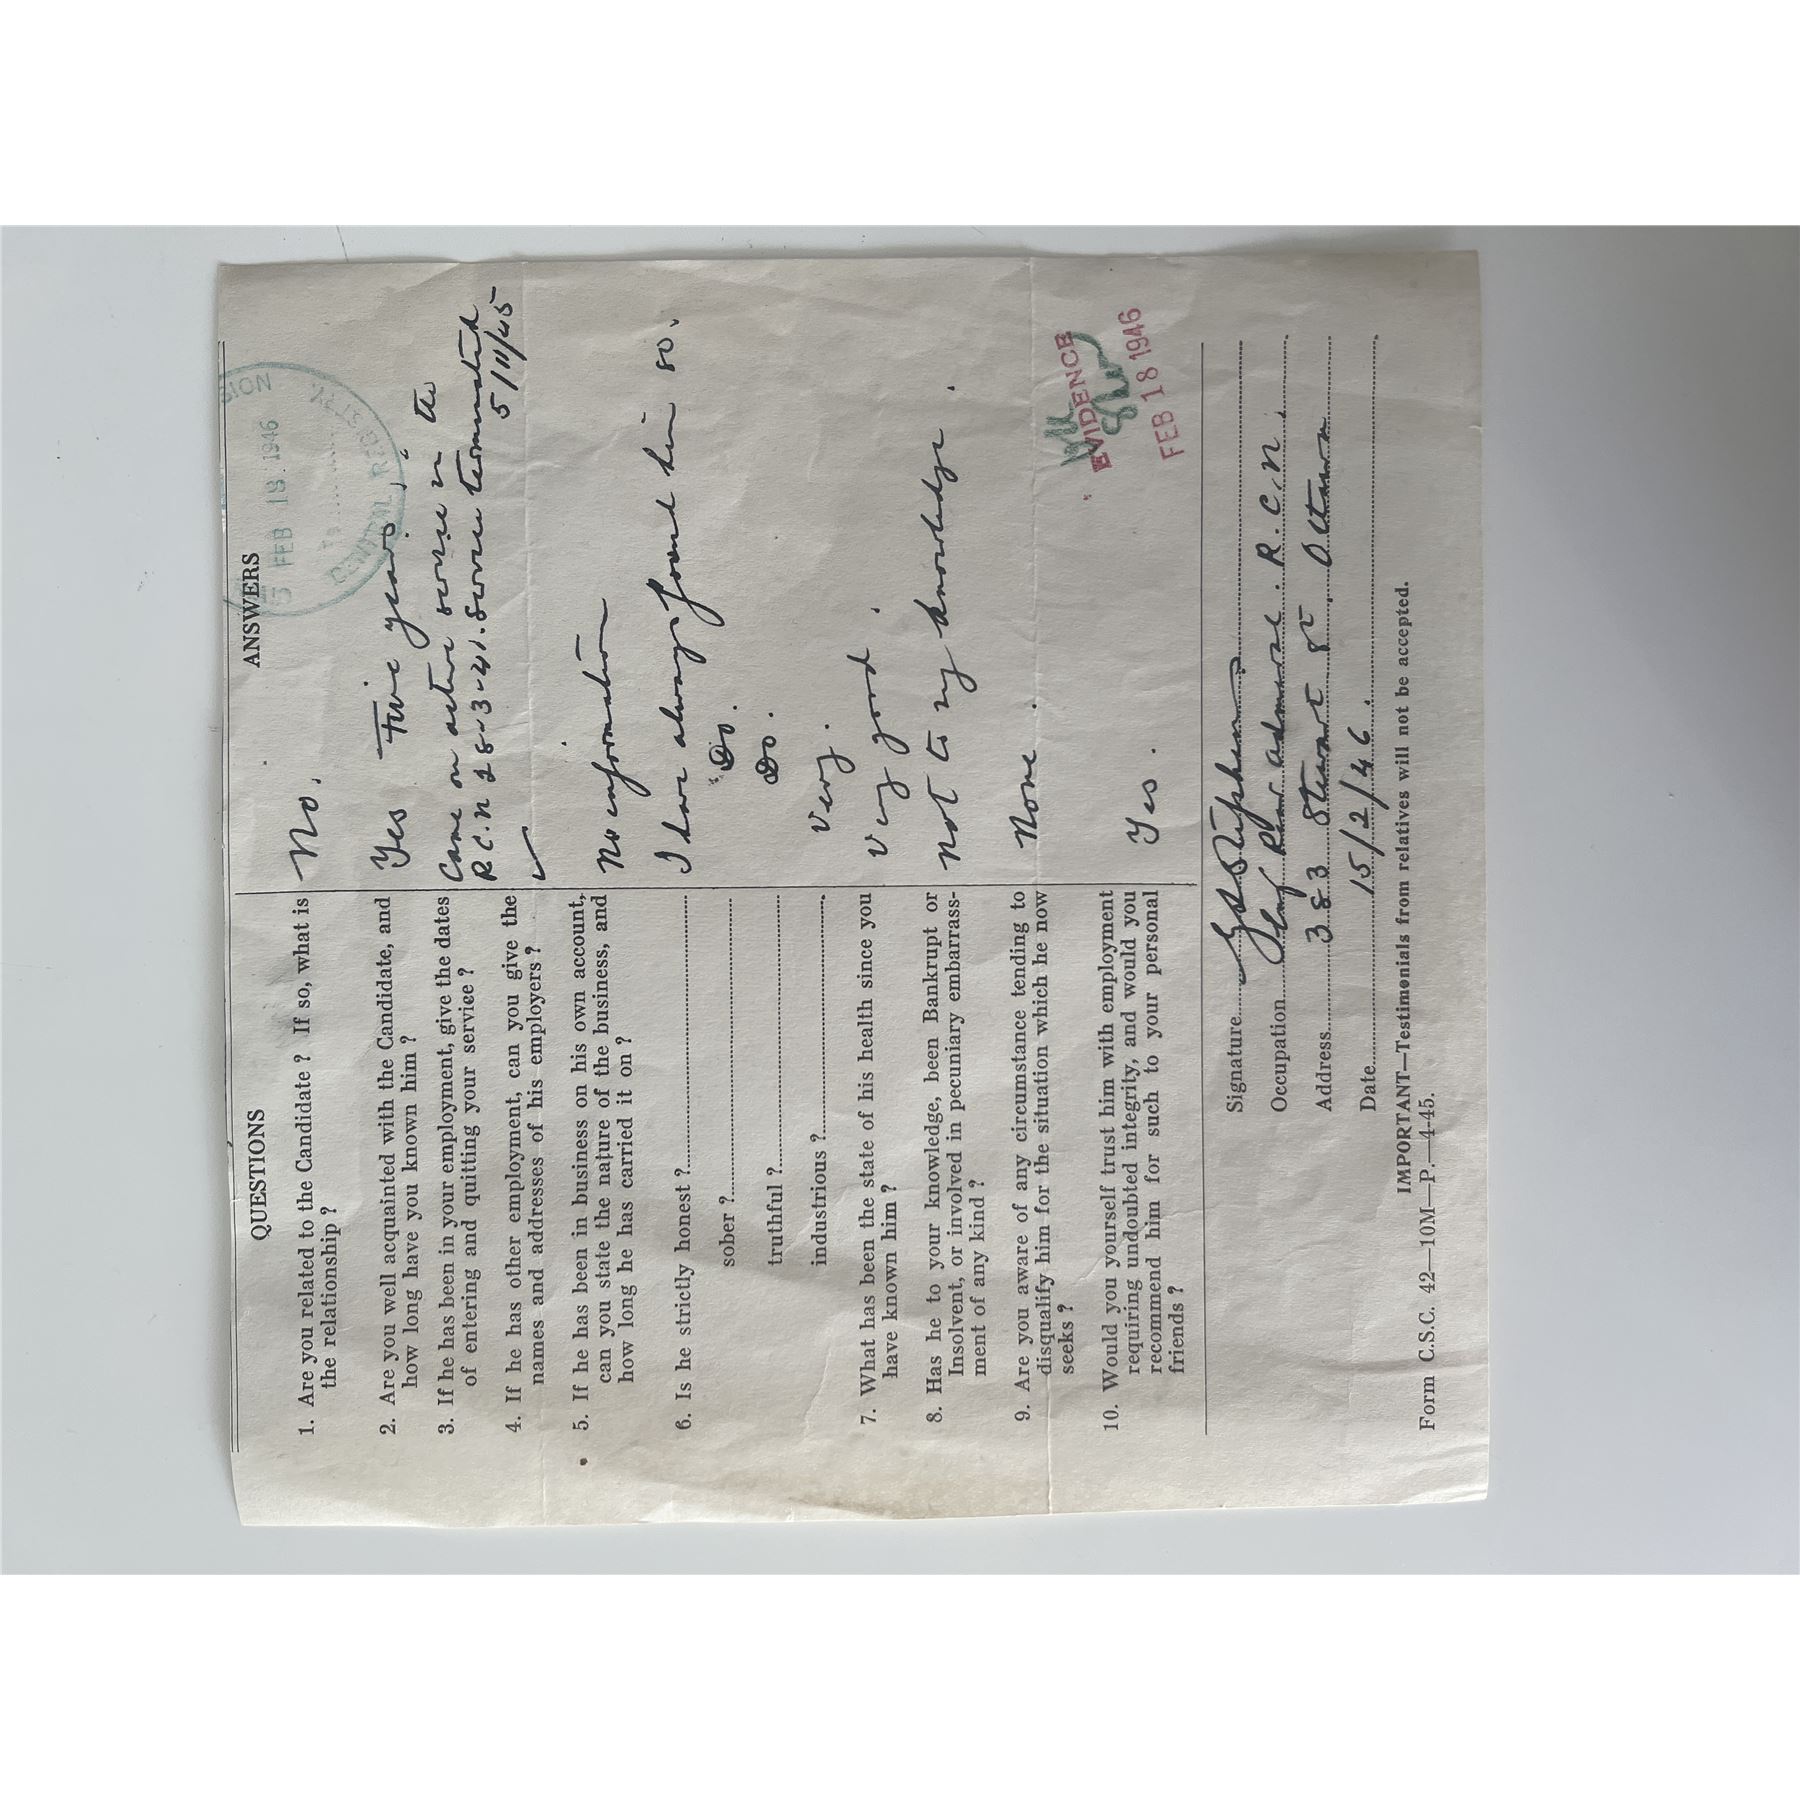 QUESTIONS
ANSWERS
SION
FEB 18 1946
CENTRAL REGISTRY
1. Are you related to the Candidate? If so, what is
the relationship?
No.
2. Are you well acquainted with the Candidate, and
how long have you known him?
Yes Five years.
3. If he has been in your employment, give the dates
of entering and quitting your service?
Came on active service in the
R.C.N 28-3-41. Service terminated
5/11/45
4. If he has other employment, can you give the
names and addresses of his employers?
5. If he has been in business on his own account,
can you state the nature of the business, and
how long he has carried it on?
No information
6. Is he strictly honest?
I have always found him so.
sober?
Do.
truthful?
Do.
industrious?
Very.
7. What has been the state of his health since you
have known him?
Very good.
8. Has he to your knowledge, been Bankrupt or
Insolvent, or involved in pecuniary embarrass-
ment of any kind?
Not to my knowledge.
9. Are you aware of any circumstance tending to
disqualify him for the situation which he now
seeks?
None.
10. Would you yourself trust him with employment
requiring undoubted integrity, and would you
recommend him for such to your personal
friends?
Yes.
EVIDENCE
FEB 18 1946
Signature G L Stephens
Occupation Rear Admiral. R.C.N.
Address 383 Stewart St. Ottawa
Date 15/2/46.
IMPORTANT—Testimonials from relatives will not be accepted.
Form C.S.C. 42—10M—P.—4-45.